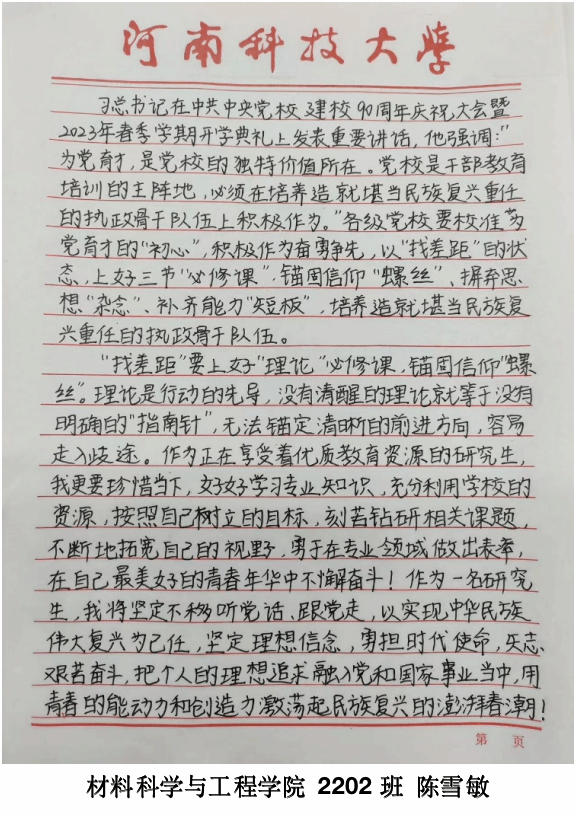 河南科技大学
习总书记在中共中央党校建校90周年庆祝大会暨
2023年春季学期开学典礼上发表重要讲话，他强调："
为党育才，是党校的独特价值所在。党校是干部教育
培训的主阵地，必须在培养造就堪当民族复兴重任
的执政骨干队伍上积极作为。"各级党校要校准为
党育才的"初心"，积极作为奋勇争先，以"找差距"的状
态，上好三节"必修课"，锚固信仰"螺丝"、摒弃思
想"杂念"、补齐能力"短板"，培养造就堪当民族复
兴重任的执政骨干队伍。
"找差距"要上好"理论"必修课，锚固信仰"螺
丝"。理论是行动的先导，没有清醒的理论就等于没有
明确的"指南针"，无法锚定清晰的前进方向，容易
走入歧途。作为正在享受着优质教育资源的研究生，
我更要珍惜当下，好好学习专业知识，充分利用学校的
资源，按照自己树立的目标，刻苦钻研相关课题，
不断地拓宽自己的视野，勇于在专业领域做出表率，
在自己最美好的青春年华中不懈奋斗！作为一名研究
生，我将坚定不移听党话、跟党走，以实现中华民族
伟大复兴为己任，坚定理想信念，勇担时代使命，矢志、
艰苦奋斗，把个人的理想追求融入党和国家事业当中，用
青春的能动力和创造力激荡起民族复兴的澎湃春潮！
第 页
材料科学与工程学院 2202 班 陈雪敏